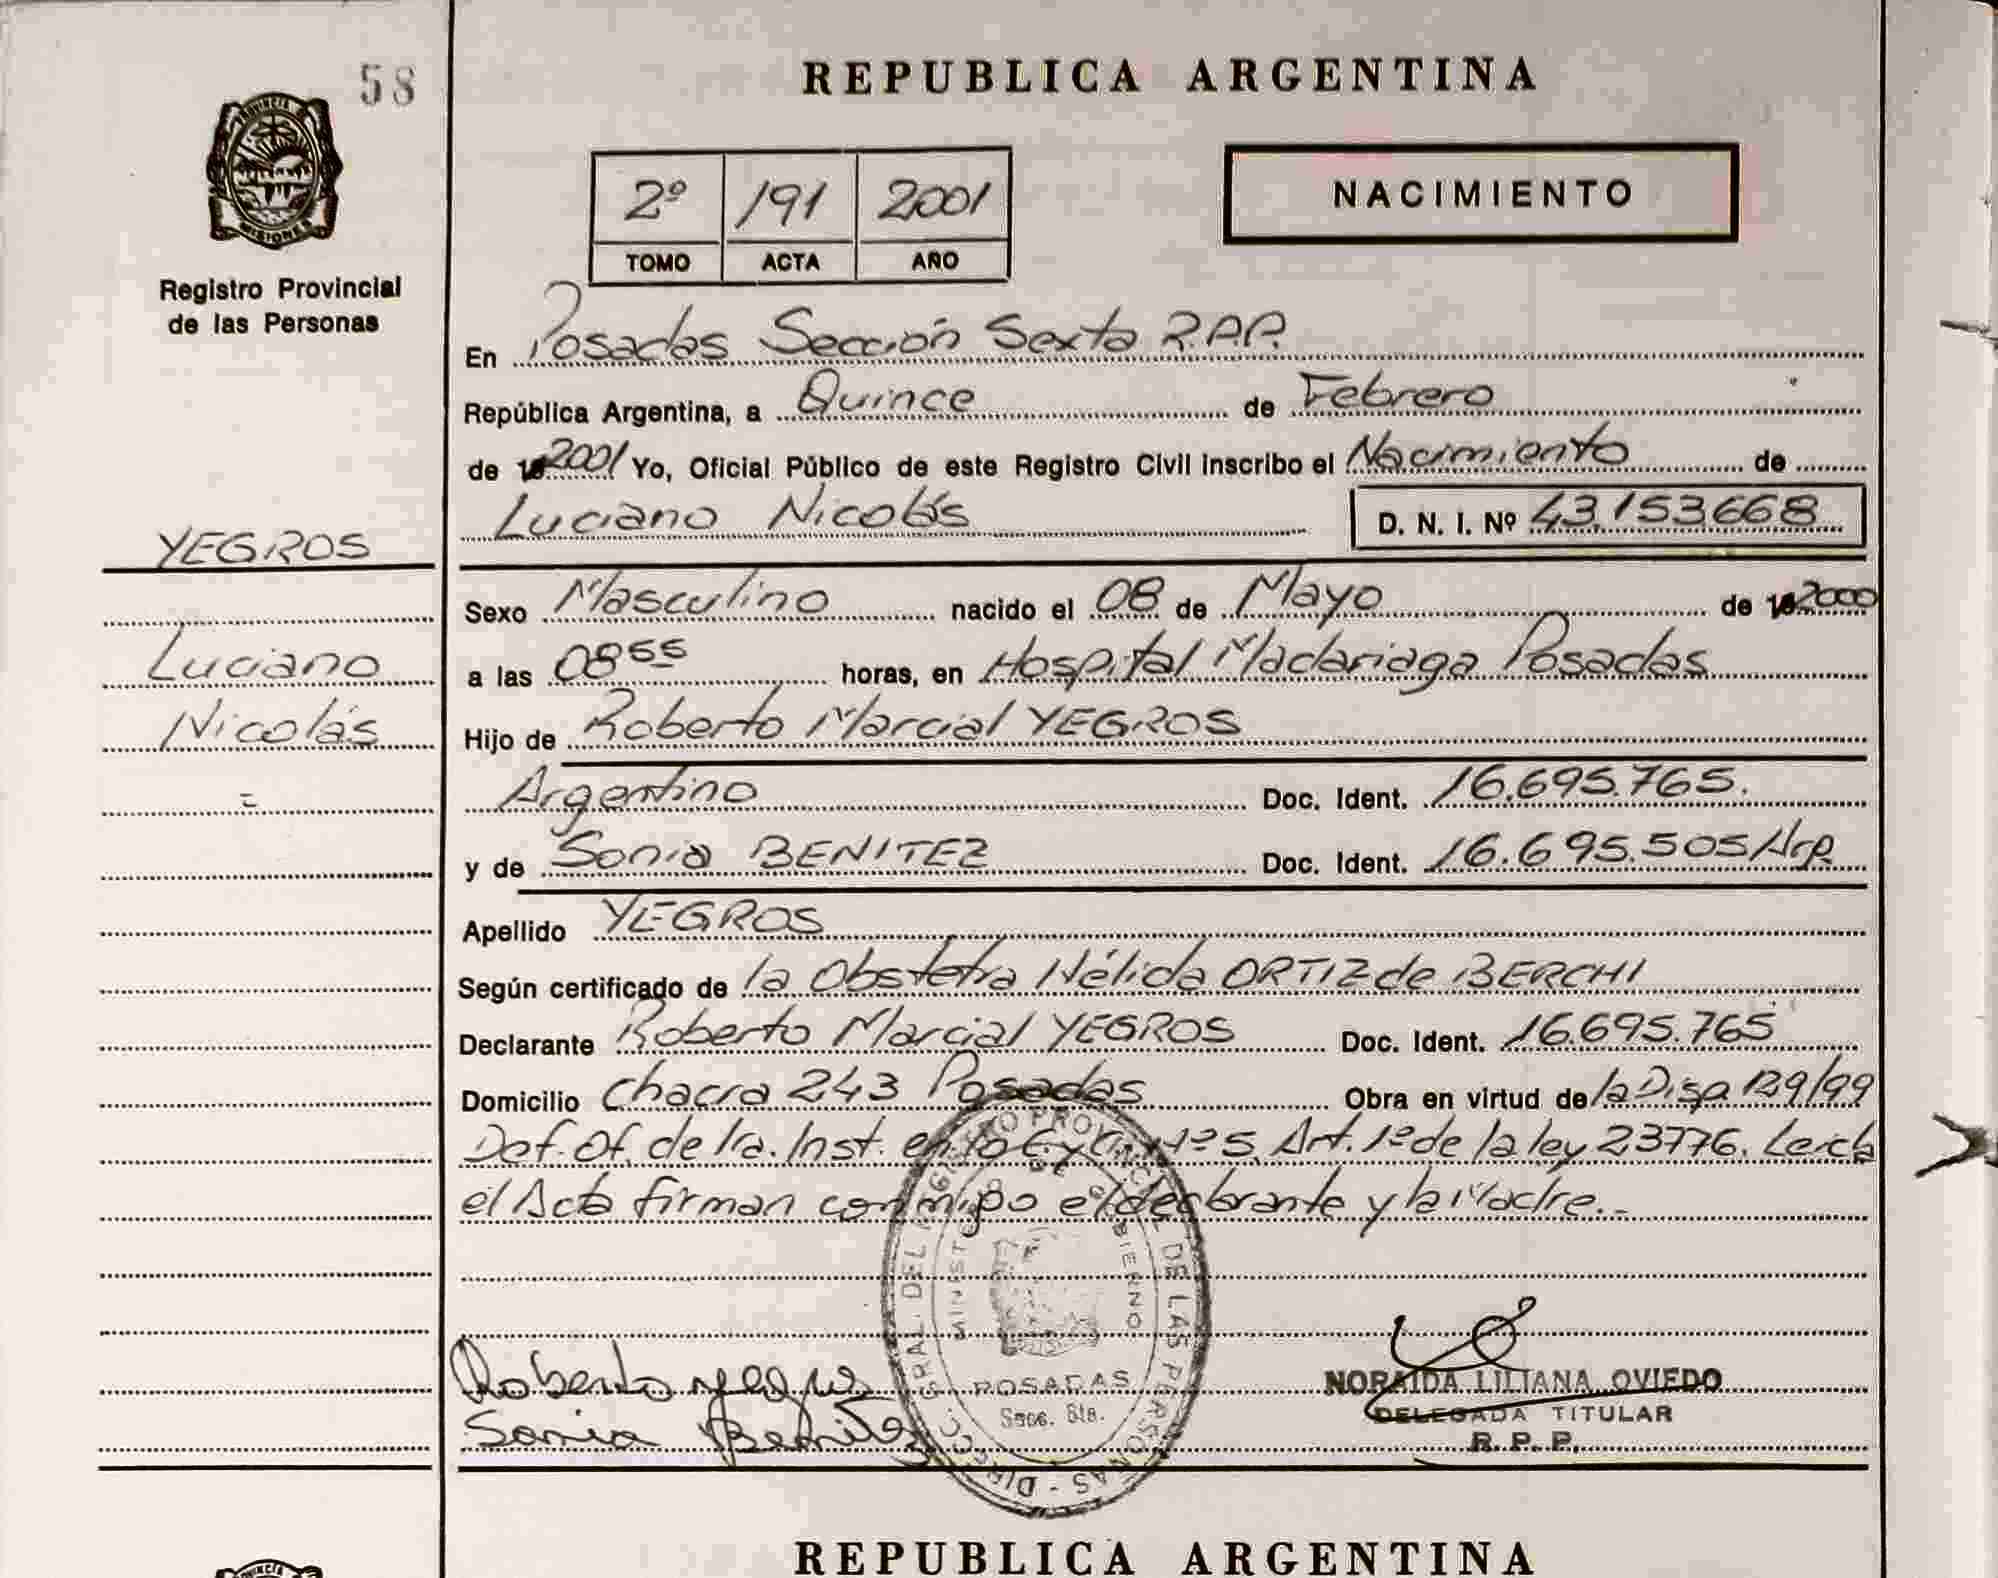 58
PROVINCIA D
MISIONES
Registro Provincial
de las Personas
REPUBLICA ARGENTINA
2º 191 2001
TOMO ACTA AÑO
NACIMIENTO
En Posadas Sección Sexta R.P.P.
República Argentina, a Quince de Febrero
de 2001 Yo, Oficial Público de este Registro Civil inscribo el Nacimiento de
Luciano Nicolás D. N. I. Nº 43.153668
YEGROS
Luciano
Nicolás
=
Sexo Masculino nacido el 08 de Mayo de 2000
a las 08 55 horas, en Hospital Madariaga Posadas
Hijo de Roberto Marcial YEGROS
Argentino Doc. Ident. 16.695.765.
y de Sonia BENITEZ Doc. Ident. 16.695.505 Arg.
Apellido YEGROS
Según certificado de la Obstetra Nélida ORTIZ de BERCHI
Declarante Roberto Marcial YEGROS Doc. Ident. 16.695.765
Domicilio Chacra 243 Posadas Obra en virtud de la Disp. 129/99
Def. Of. de 1ra. Inst. en lo C y Com. nº 5, Art. 1º de la ley 23776. Leida
el Acta firman conmigo el declarante y la Madre.-
Roberto Yegros
Sonia Benitez
DIRECC. GRAL. DEL REGISTRO PROVINCIAL DE LAS PERSONAS -
MINISTERIO DE GOBIERNO
POSADAS
Secc. 6ta.
NORAIDA LILIANA OVIEDO
DELEGADA TITULAR
R. P. P.
REPUBLICA ARGENTINA